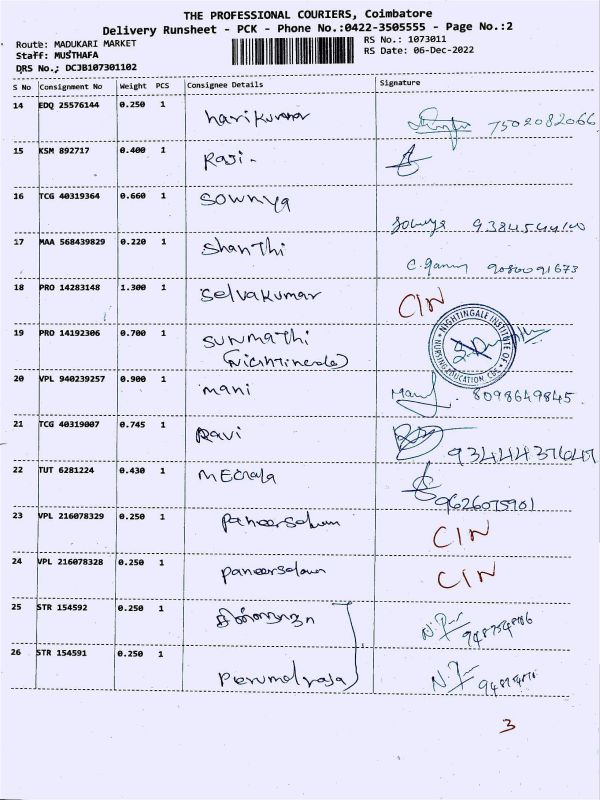 THE PROFESSIONAL COURIERS, Coimbatore
Delivery Runsheet - PCK - Phone No.:0422-3505555 - Page No.:2
Route: MADUKARI MARKET
RS No.: 1073011
Staff: MUSTHAFA
RS Date: 06-Dec-2022
DRS No.; DCJB107301102
S No Consignment No Weight PCS Consignee Details Signature
14 EDQ 25576144 0.250 1 harikumar 7502082066
15 KSM 892717 0.400 1 Raji-
16 TCG 40319364 0.660 1 Sowmya
17 MAA 568439829 0.220 1 Shanthi 9080091673
18 PRO 14283148 1.300 1 Selvakumar CIN
19 PRO 14192306 0.700 1 Sunmathi
NIGHTINGALE INSTITUTE OF NURSING EDUCATION, CBE
20 VPL 940239257 0.900 1 mani Mani 8098649845
21 TCG 40319007 0.745 1 Ravi
22 TUT 6281224 0.430 1 mEchala 9626075901
23 VPL 216078329 0.250 1 Paneerselvam CIN
24 VPL 216078328 0.250 1 Paneerselvam CIN
25 STR 154592 0.250 1
26 STR 154591 0.250 1 Perumalraja
3